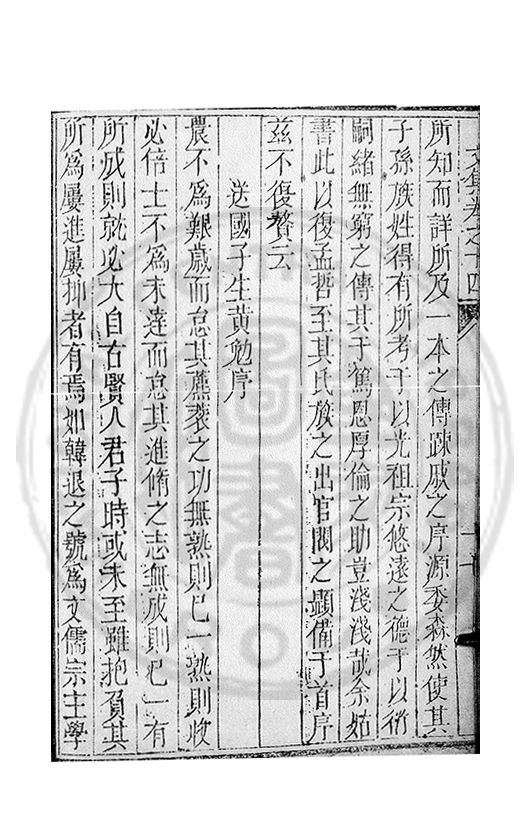 文集卷之十四
所知而詳所及一本之傳踈戚之序源委森然使其
子孫族姓得有所考于以光祖宗悠遠之德于以衍
嗣緒無窮之傳其于篤恩厚倫之助豈淺淺哉余姑
書此以復孟哲至其氏族之出官閥之顯備于首序
茲不復贅云
送國子生黃勉序
農不為艱歲而怠其蔍蓘之功無熟則已一熟則收
必倍士不為未達而怠其進脩之志無成則已一有
所成則就必大自古賢人君子時或未至雖抱負其
所為屢進屢抑者有焉如韓退之號為文儒宗主學